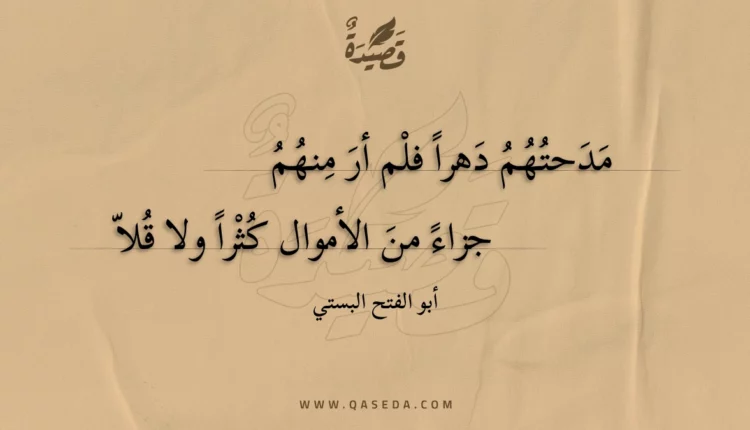 قَصِيدَةٌ
مَدَحتُهُمُ دَهراً فلْم أرَ مِنهُمُ
جزاءً منَ الأموال كُثْراً ولا قُلاّ
أبو الفتح البستي
WWW.QASEDA.COM